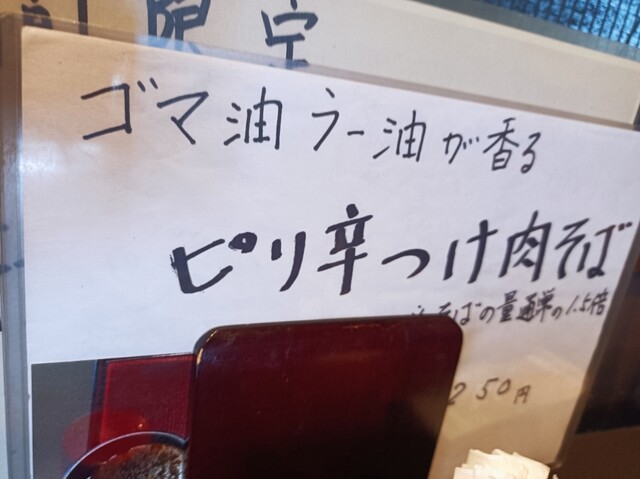 限定
ゴマ油ラー油が香る
ピリ辛つけ肉そば
そばの量通常の1.5倍
250円